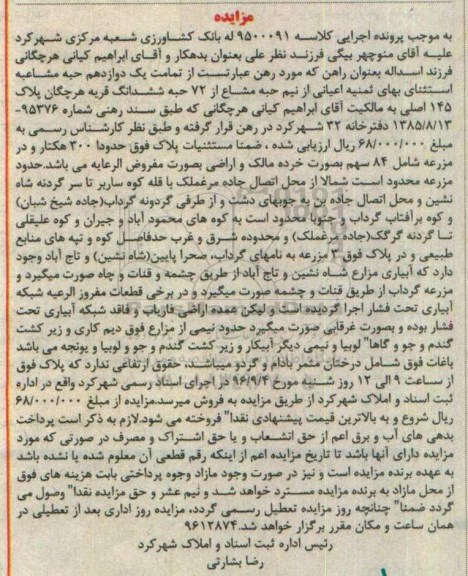 مزایده
به موجب پرونده اجرایی کلاسه ۹۵۰۰۰۹۱ له بانک کشاورزی شعبه مرکزی شهرکرد
علیه آقای منوچهر بیگی فرزند نظر علی بعنوان بدهکار و آقای ابراهیم کیانی هرچگانی
فرزند اسداله بعنوان راهن که مورد رهن عبارتست از تمامت یک دوازدهم حبه مشاعبه
استثنای بهای ثمنیه اعیانی از نیم حبه مشاع از ۷۲ حبه ششدانگ قریه هرچگان پلاک
۱۴۵ اصلی به مالکیت آقای ابراهیم کیانی هرچگانی که طبق سند رهنی شماره ۹۵۳۷۶-
۱۳۸۵/۸/۱۳ دفترخانه ۳۲ شهرکرد در رهن قرار گرفته و طبق نظر کارشناس رسمی به
مبلغ ۶۸/۰۰۰/۰۰۰ ریال ارزیابی شده ، ضمنا مستثنیات پلاک فوق حدودا ۳۰۰ هکتار و در
مزرعه شامل ۸۴ سهم بصورت خرده مالک و اراضی بصورت مفروض الرعایه می باشد.حدود
مزرعه محدود است شمالا از محل اتصال جاده مرغملک با قله کوه ساریر تا سر گردنه شاه
نشین و محل اتصال جاده بن به جوبهای دشت و از طرفی گردونه گرداب(جاده شیخ شبان)
و کوه برآفتاب گرداب و جنوبا محدود است به کوه های محمود آباد و جیران و کوه علیقلی
تا گردنه گرگک(جاده مرغملک) و محدوده شرق و غرب حدفاصل کوه و تپه های منابع
طبیعی و در پلاک فوق ۳ مزرعه به نامهای گرداب، صحرا پایین(شاه نشین) و تاج آباد وجود
دارد که آبیاری مزارع شاه نشین و تاج آباد از طریق چشمه و قنات و چاه صورت میگیرد و
مزرعه گرداب از طریق قنات و چشمه صورت میگیرد و در برخی قطعات مفروز الرعیه شبکه
آبیاری تحت فشار اجرا گردیده است و لیکن عمده اراضی فاریاب و فاقد شبکه آبیاری تحت
فشار بوده و بصورت غرقابی صورت میگیرد حدود نیمی از مزارع فوق دیم کاری و زیر کشت
گندم و جو و گاها" لوبیا و نیمی دیگر آبیکار و زیر کشت گندم و جو و لوبیا و یونجه می باشد
باغات فوق شامل درختان مثمر بادام و گردو میباشد، حقوق ارتفاعی ندارد که پلاک فوق
از ساعت ۹ الی ۱۲ روز شنبه مورخ ۹۶/۹/۴ در اجرای اسناد رسمی شهرکرد واقع در اداره
ثبت اسناد و املاک شهرکرد از طریق مزایده به فروش میرسد.مزایده از مبلغ ۶۸/۰۰۰/۰۰۰
ریال شروع و به بالاترین قیمت پیشنهادی نقدا" فروخته می شود.لازم به ذکر است پرداخت
بدهی های آب و برق اعم از حق انشعاب و یا حق اشتراک و مصرف در صورتی که مورد
مزایده دارای آنها باشد تا تاریخ مزایده اعم از اینکه رقم قطعی آن معلوم شده یا نشده باشد
به عهده برنده مزایده است و نیز در صورت وجود مازاد وجوه پرداختی بابت هزینه های فوق
از محل مازاد به برنده مزایده مسترد خواهد شد و نیم عشر و حق مزایده نقدا" وصول می
گردد ضمنا" چنانچه روز مزایده تعطیل رسمی گردد، مزایده روز اداری بعد از تعطیلی در
همان ساعت و مکان مقرر برگزار خواهد شد.۹۶۱۲۸۷۴
رئیس اداره ثبت اسناد و املاک شهرکرد
رضا بشارتی